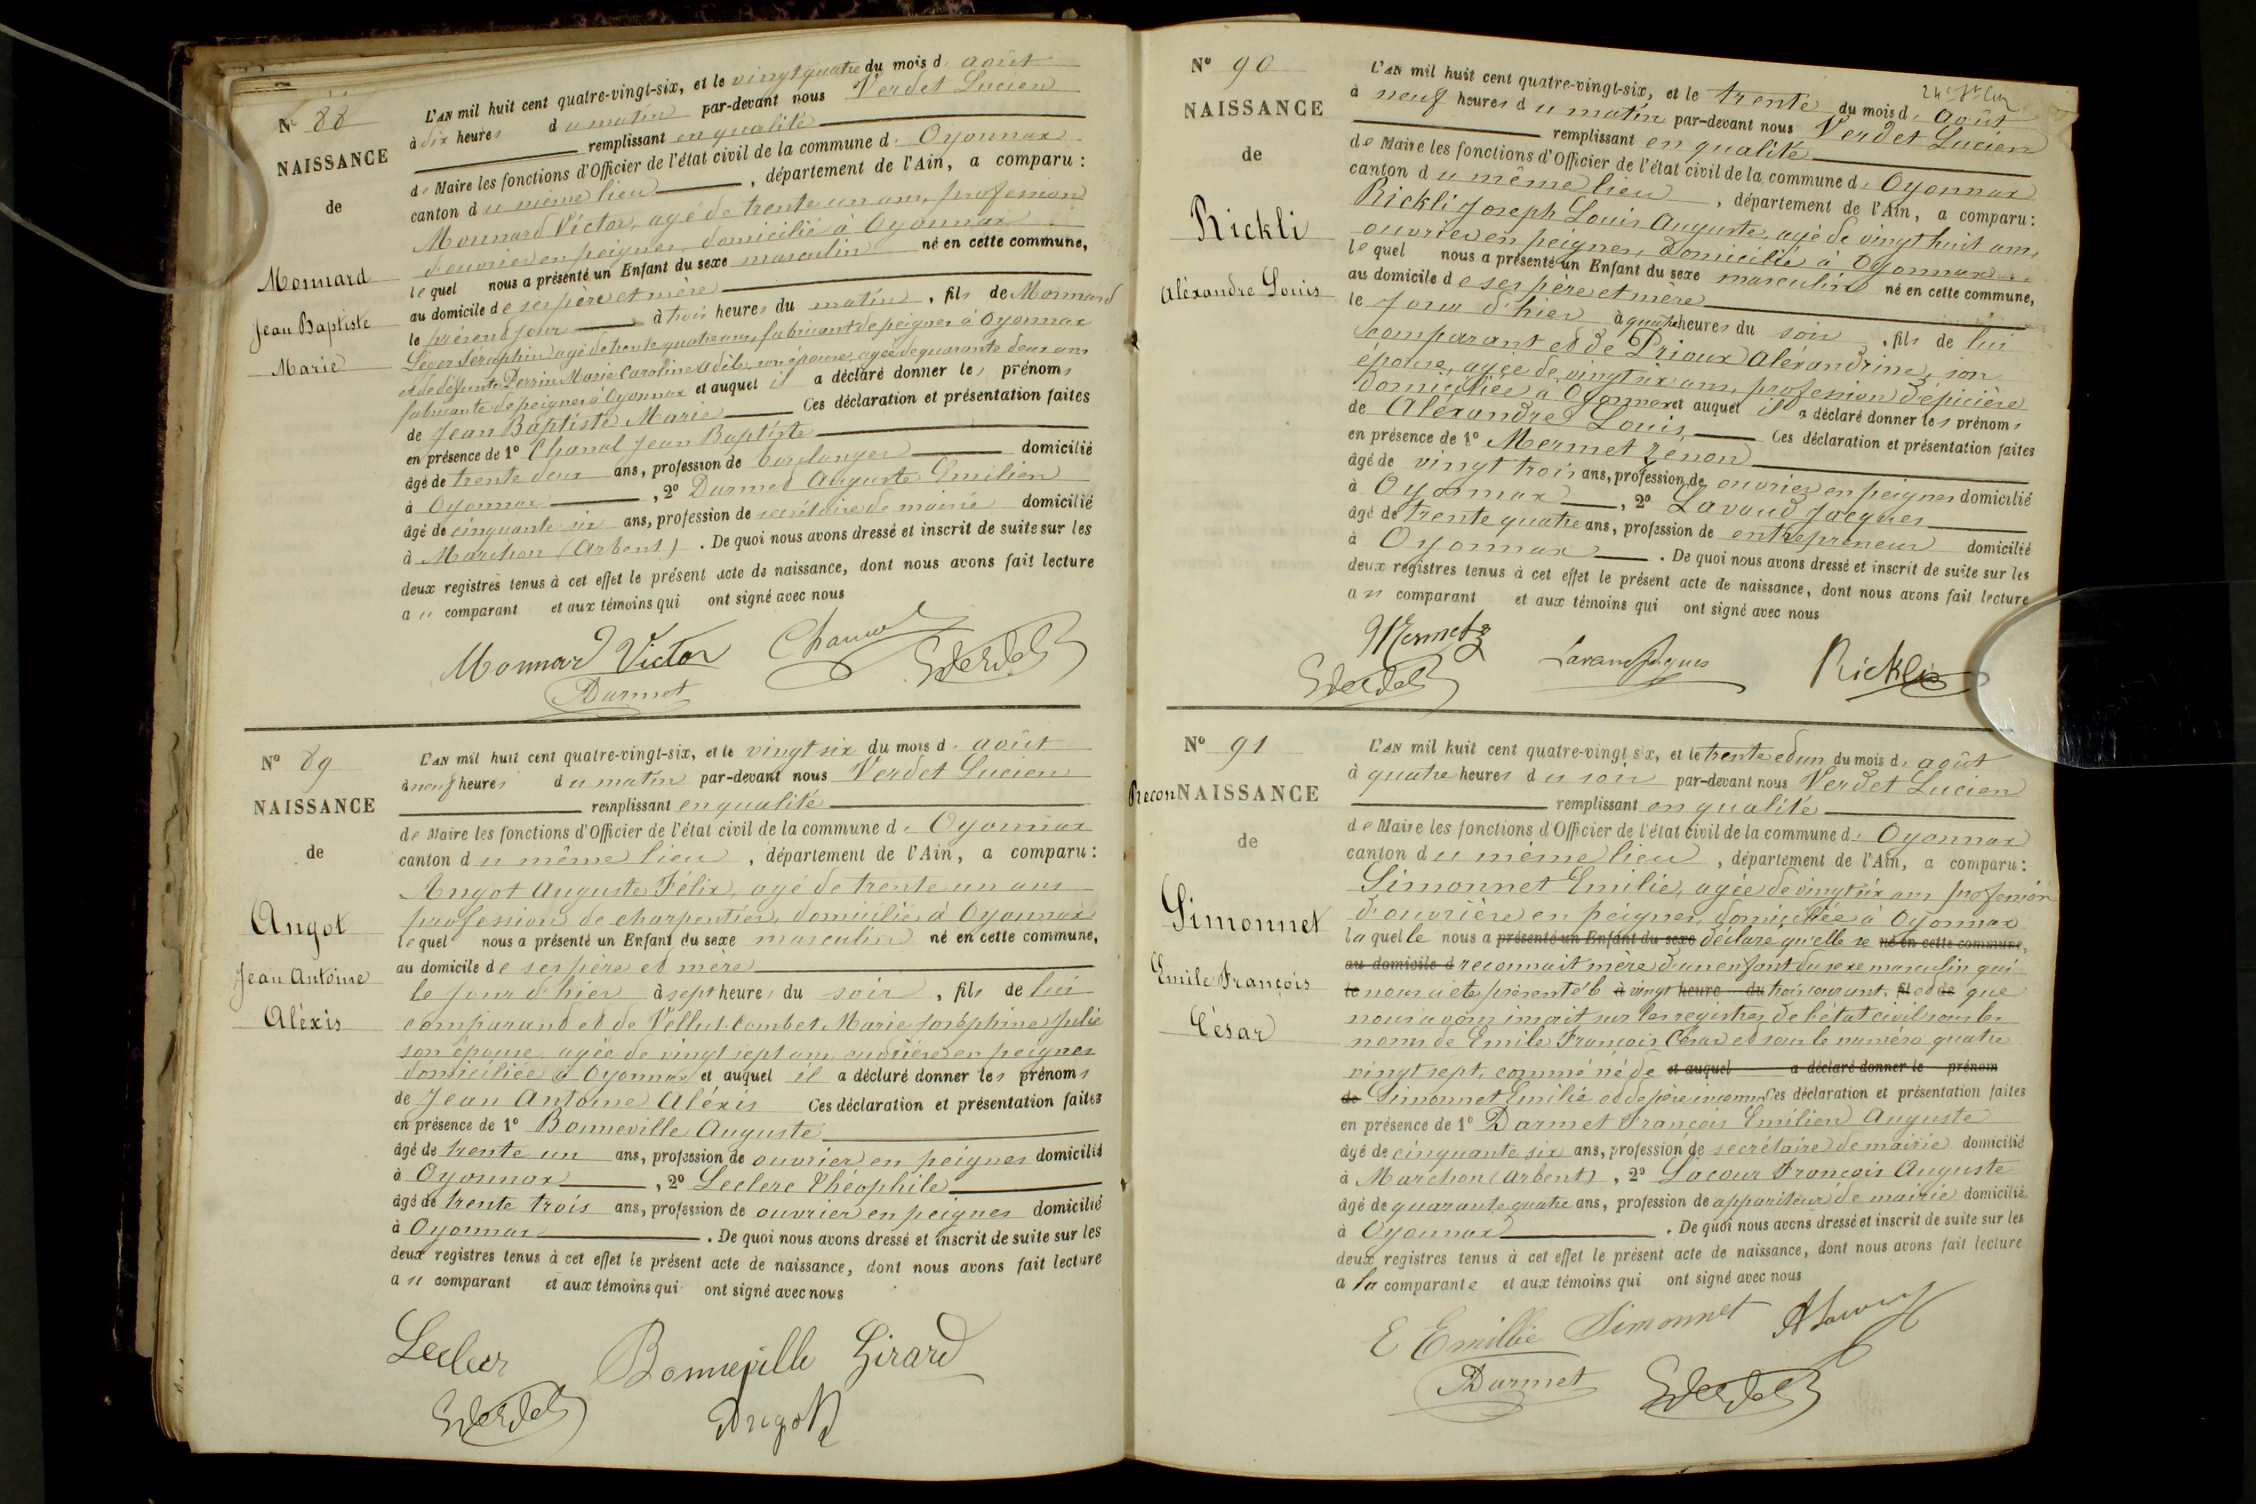 N° 88
NAISSANCE
de
Monnard
Jean Baptiste
Marie
L'AN mil huit cent quatre-vingt-six, et le vingt quatre du mois d. août
à dix heures du matin par-devant nous Verdet Lucien
remplissant en qualité
de Maire les fonctions d'Officier de l'état civil de la commune d. Oyonnax
canton du même lieu, département de l'Ain, a comparu:
Monnard Victor, agé de trente un ans, profession
d'ouvrier en peignes, domicilié à Oyonnax
lequel nous a présenté un Enfant du sexe masculin né en cette commune,
au domicile de ses père et mère
le présent jour à trois heures du matin, fils de Monnard
Léger Séraphin agé de trente quatre ans, fabricant de peignes à Oyonnax
et de défunte Perrin Marie Caroline Adèle, son épouse, agée de quarante deux ans
fabricante de peignes à Oyonnax et auquel il a déclaré donner les prénoms
de Jean Baptiste Marie Ces déclaration et présentation faites
en présence de 1° Chanal Jean Baptiste
âgé de trente deux ans, profession de boulanger domicilié
à Oyonnax, 2° Darmet Auguste Emilien
âgé de cinquante six ans, profession de secrétaire de mairie domicilié
à Marchon (Arbent). De quoi nous avons dressé et inscrit de suite sur les
deux registres tenus à cet effet le présent acte de naissance, dont nous avons fait lecture
au comparant et aux témoins qui ont signé avec nous
Monnard Victor Chanal
Darmet
N° 89
NAISSANCE
de
Angot
Jean Antoine
Aléxis
L'AN mil huit cent quatre-vingt-six, et le vingt six du mois d. août
à neuf heures du matin par-devant nous Verdet Lucien
remplissant en qualité
de Maire les fonctions d'Officier de l'état civil de la commune d. Oyonnax
canton du même lieu, département de l'Ain, a comparu:
Angot Auguste Félix, agé de trente un ans
profession de charpentier, domicilié à Oyonnax
lequel nous a présenté un Enfant du sexe masculin né en cette commune,
au domicile de ses père et mère
le jour d'hier à sept heures du soir, fils de lui
comparant et de Vellut-Combet Marie Joséphine Julie
son épouse, agée de vingt sept ans ouvrière en peignes
domiciliée à Oyonnax et auquel il a déclaré donner les prénoms
de Jean Antoine Aléxis Ces déclaration et présentation faites
en présence de 1° Bonneville Auguste
âgé de trente un ans, profession de ouvrier en peignes domicilié
à Oyonnax, 2° Leclerc Théophile
âgé de trente trois ans, profession de ouvrier en peignes domicilié
à Oyonnax. De quoi nous avons dressé et inscrit de suite sur les
deux registres tenus à cet effet le présent acte de naissance, dont nous avons fait lecture
au comparant et aux témoins qui ont signé avec nous
Leclerc Bonneville Girard
Angot
N° 90
NAISSANCE
de
Rickli
Aléxandre Louis
L'AN mil huit cent quatre-vingt-six, et le trente du mois d. août
à neuf heures du matin par-devant nous Verdet Lucien
remplissant en qualité
de Maire les fonctions d'Officier de l'état civil de la commune d. Oyonnax
canton du même lieu, département de l'Ain, a comparu:
Rickli Joseph Louis Auguste, agé de vingt huit ans,
ouvrier en peignes, domicilié à Oyonnax
lequel nous a présenté un Enfant du sexe masculin né en cette commune,
au domicile de ses père et mère
le jour d'hier à quatre heures du soir, fils de lui
comparant et de Prioux Aléxandrine, son
épouse, agée de vingt six ans, profession d'épicière
domiciliée à Oyonnax et auquel il a déclaré donner les prénoms
de Aléxandre Louis, Ces déclaration et présentation faites
en présence de 1° Mermet Zenon
âgé de vingt trois ans, profession de ouvrier en peignes domicilié
à Oyonnax, 2° Lavaud Jacques
âgé de trente quatre ans, profession de entrepreneur domicilié
à Oyonnax. De quoi nous avons dressé et inscrit de suite sur les
deux registres tenus à cet effet le présent acte de naissance, dont nous avons fait lecture
au comparant et aux témoins qui ont signé avec nous
Mermet Z
Lavaud Jacques Rickli
N° 91
ReconNAISSANCE
de
Simonnet
Emile François
César
L'AN mil huit cent quatre-vingt six, et le trente et un du mois d. août
à quatre heures du soir par-devant nous Verdet Lucien
remplissant en qualité
de Maire les fonctions d'Officier de l'état civil de la commune d. Oyonnax
canton du même lieu, département de l'Ain, a comparu:
Simonnet Emilie, agée de vingt six ans profession
d'ouvrière en peignes, domiciliée à Oyonnax
laquelle nous a présenté un Enfant du sexe déclaré qu'elle se né en cette commune,
au domicile d reconnait mère d'un enfant du sexe masculin qui
le nous a été présenté le à vingt heure du trois courant, fil et de que
nous avons inscrit sur les registres de l'état civil sous les
noms de Emile François César et sous le numéro quatre
vingt sept, comme né de et auquel a déclaré donner le prénom
de Simonnet Emilie et de père inconnu Ces déclaration et présentation faites
en présence de 1° Darmet François Emilien Auguste
âgé de cinquante six ans, profession de secrétaire de mairie domicilié
à Marchon (Arbent), 2° Lacour François Auguste
âgé de quarante quatre ans, profession de appariteur de mairie domicilié
à Oyonnax. De quoi nous avons dressé et inscrit de suite sur les
deux registres tenus à cet effet le présent acte de naissance, dont nous avons fait lecture
a la comparante et aux témoins qui ont signé avec nous
E Emillie Simonnet
Darmet